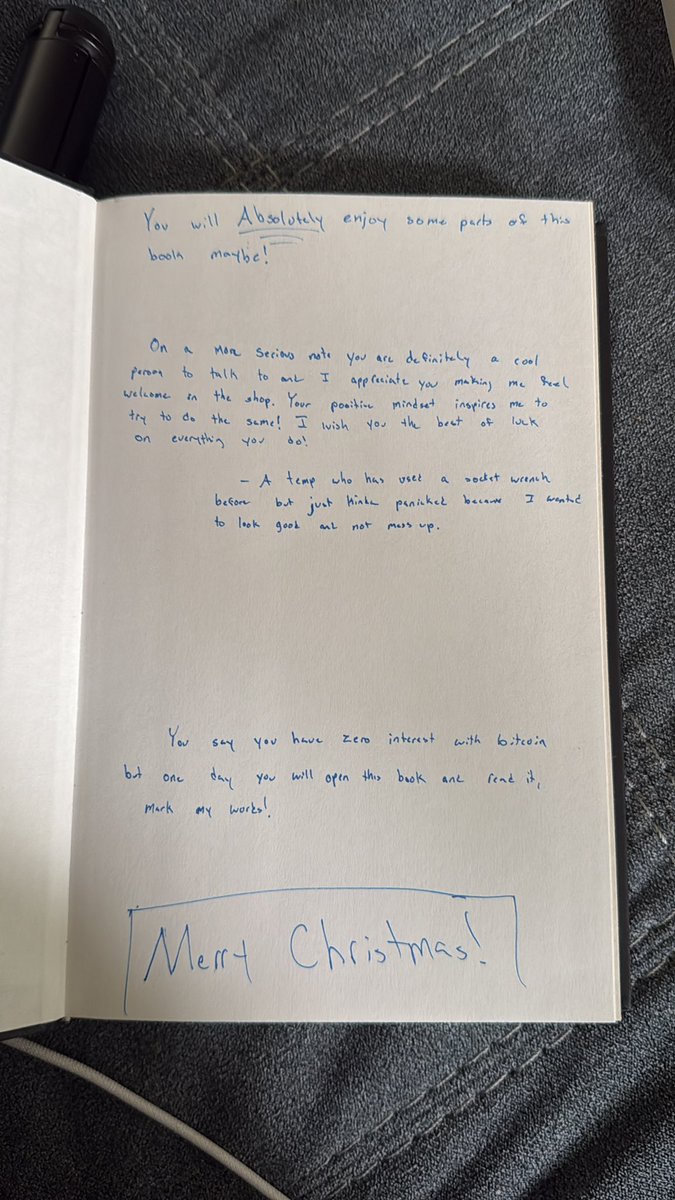 You will Absolutely enjoy some parts of this
book maybe!
On a more serious note you are definitely a cool
person to talk to and I appreciate you making me feel
welcome in the shop. Your positive mindset inspires me to
try to do the same! I wish you the best of luck
on everything you do!
- A temp who has used a socket wrench
before but just kinda panicked because I wanted
to look good and not mess up.
You say you have zero interest with bitcoin
but one day you will open this book and read it,
mark my words!
Merry Christmas!